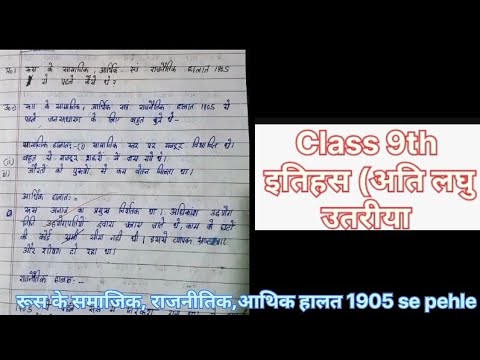 प्र०) रूस के सामाजिक, आर्थिक एवं राजनैतिक हालात 1905
से पहले कैसे थे?
उ०) रूस के सामाजिक, आर्थिक एवं राजनैतिक हालात 1905 से
पहले जनसाधारण के लिए बहुत बुरे थे -
सामाजिक हालात:- (i) सामाजिक स्तर पर मजदूर विभाजित थे।
(ii) बहुत से मजदूर शहरों में बस गये थे।
औरतों को पुरुषों से कम वेतन मिलता था।
आर्थिक हालात:-
रूस अनाज का प्रमुख निर्यातक था। अधिकांश उद्योग
निजि उद्योगपतियों द्वारा चलाए जाते थे, काम के घंटों
की कोई सीमा नहीं थी। इससे व्यापक
और शोषण हो रहा था।
राजनैतिक हालात:-
Class 9th
इतिहस (अति लघु
उतरीया
रूस के समाजिक, राजनीतिक,आथिक हालत 1905 se pehle